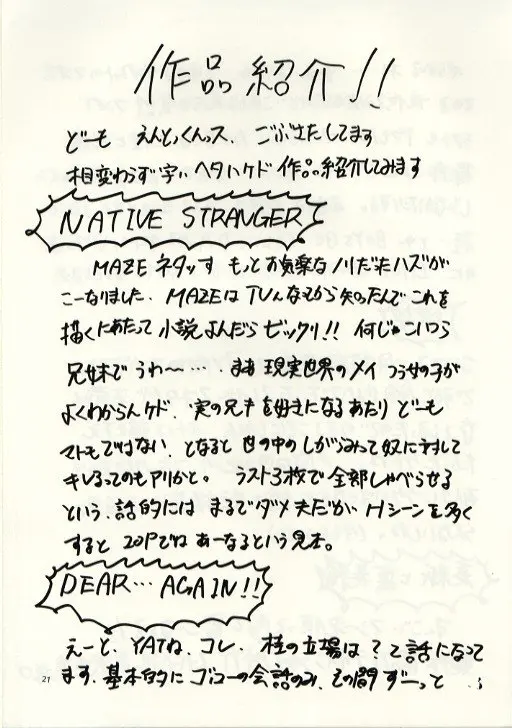 作品紹介!!
どーも えんどくんっス、ごぶさたしてます
相変わらず字ぃヘタいケド 作品紹介してみます
NATIVE STRANGER
MAZEネタっす もっとお気楽なノリだったハズが
こーなりました. MAZEはTVんなもから知ったんで これを
描くにあたって 小説よんだら ビックリ!! 何じゃこいつら
兄妹で うわ〜…. まあ 現実世界のメイ つう女の子が
よくわからんケド、実の兄キを好きになるあたり どーも
マトモではない、となると 世の中のしがらみって奴に対して
キレるってのもアリかと。 ラスト3枚で全部しゃべらせる
という、話的には まるでダメ夫だが Hシーンを多く
すると 20Pでは あーなるという見本。
DEAR… AGAIN!!
えーと、YATね、コレ. 桂の立場は?と話になって
ます、基本的に ゴローの会話のみ、その間ずーっと
21